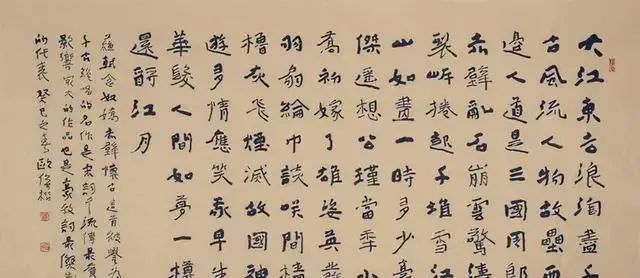 大江東去浪淘盡千
古風流人物故壘西
邊人道是三國周郎
赤壁亂石崩雲驚濤
裂岸捲起千堆雪江
山如畫一時多少豪
傑遙想公瑾當年小
喬初嫁了雄姿英
羽扇綸巾談咲間檣
櫓灰飛煙滅故國神
遊多情應笑我早生
華髮人間如夢一樽
還酹江月
蘇軾念奴嬌赤壁懷古是首被譽為
千古絕唱的名作是宋詞中流傳最廣
影響最大的作品也是豪放詞最傑
的代表 癸巳之春 歐